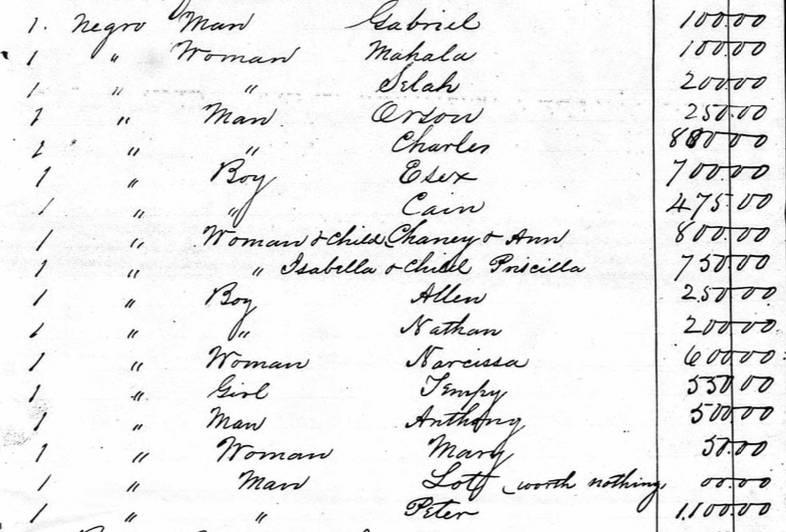 1. Negro Man Gabriel 100.00
1 " Woman Mahala 100.00
1 " " Selah 200.00
1 " Man Orson 250.00
1 " " Charles 800.00
1 " Boy Esex 700.00
1 " " Cain 475.00
1 " Woman & Child Chaney & Ann 800.00
1 " " Isabella & Child Priscilla 750.00
1 " Boy Allen 250.00
1 " " Nathan 200.00
1 " Woman Narcissa 600.00
1 " Girl Tempy 550.00
1 " Man Anthony 500.00
1 " Woman Mary 50.00
1 " Man Lott worth nothing 00.00
1 " " Peter 1,100.00